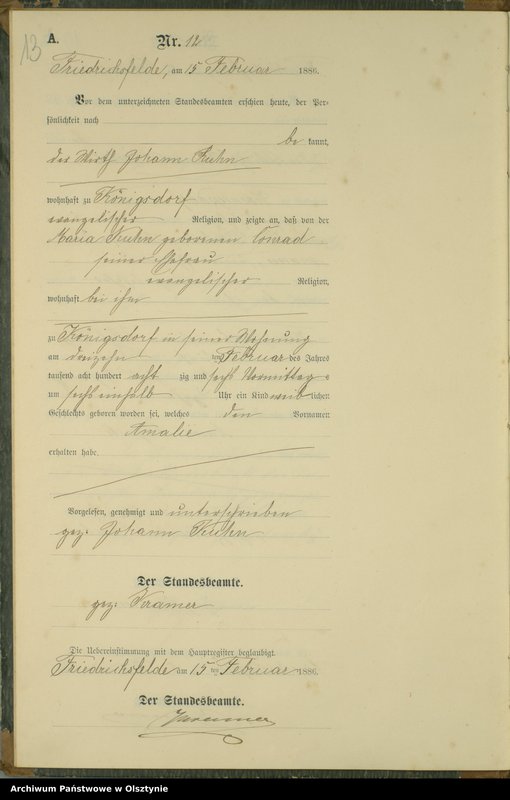 13
A.
Nr. 12
Friedrichsfelde, am 15 Februar 1886.
Vor dem unterzeichneten Standesbeamten erschien heute, der Per-
sönlichkeit nach
be kannt,
der Wirth Johann Kuhn
wohnhaft zu Königsdorf
evangelischer Religion, und zeigte an, daß von der
Maria Kuhn geborenen Conrad
seiner Ehefrau
evangelischer Religion,
wohnhaft bei ihm
zu Königsdorf in seiner Wohnung
am dreizehn ten Februar des Jahres
tausend acht hundert acht zig und sechs Vormittag s
um sechs einhalb Uhr ein Kind weib lichen
Geschlechts geboren worden sei, welches den Vornamen
Amalie
erhalten habe.
Vorgelesen, genehmigt und unterschrieben
gez: Johann Kuhn
Der Standesbeamte.
gez: Kramer
Die Uebereinstimmung mit dem Hauptregister beglaubigt.
Friedrichsfelde am 15 ten Februar 1886.
Der Standesbeamte.
Kramer
Archiwum Państwowe w Olsztynie